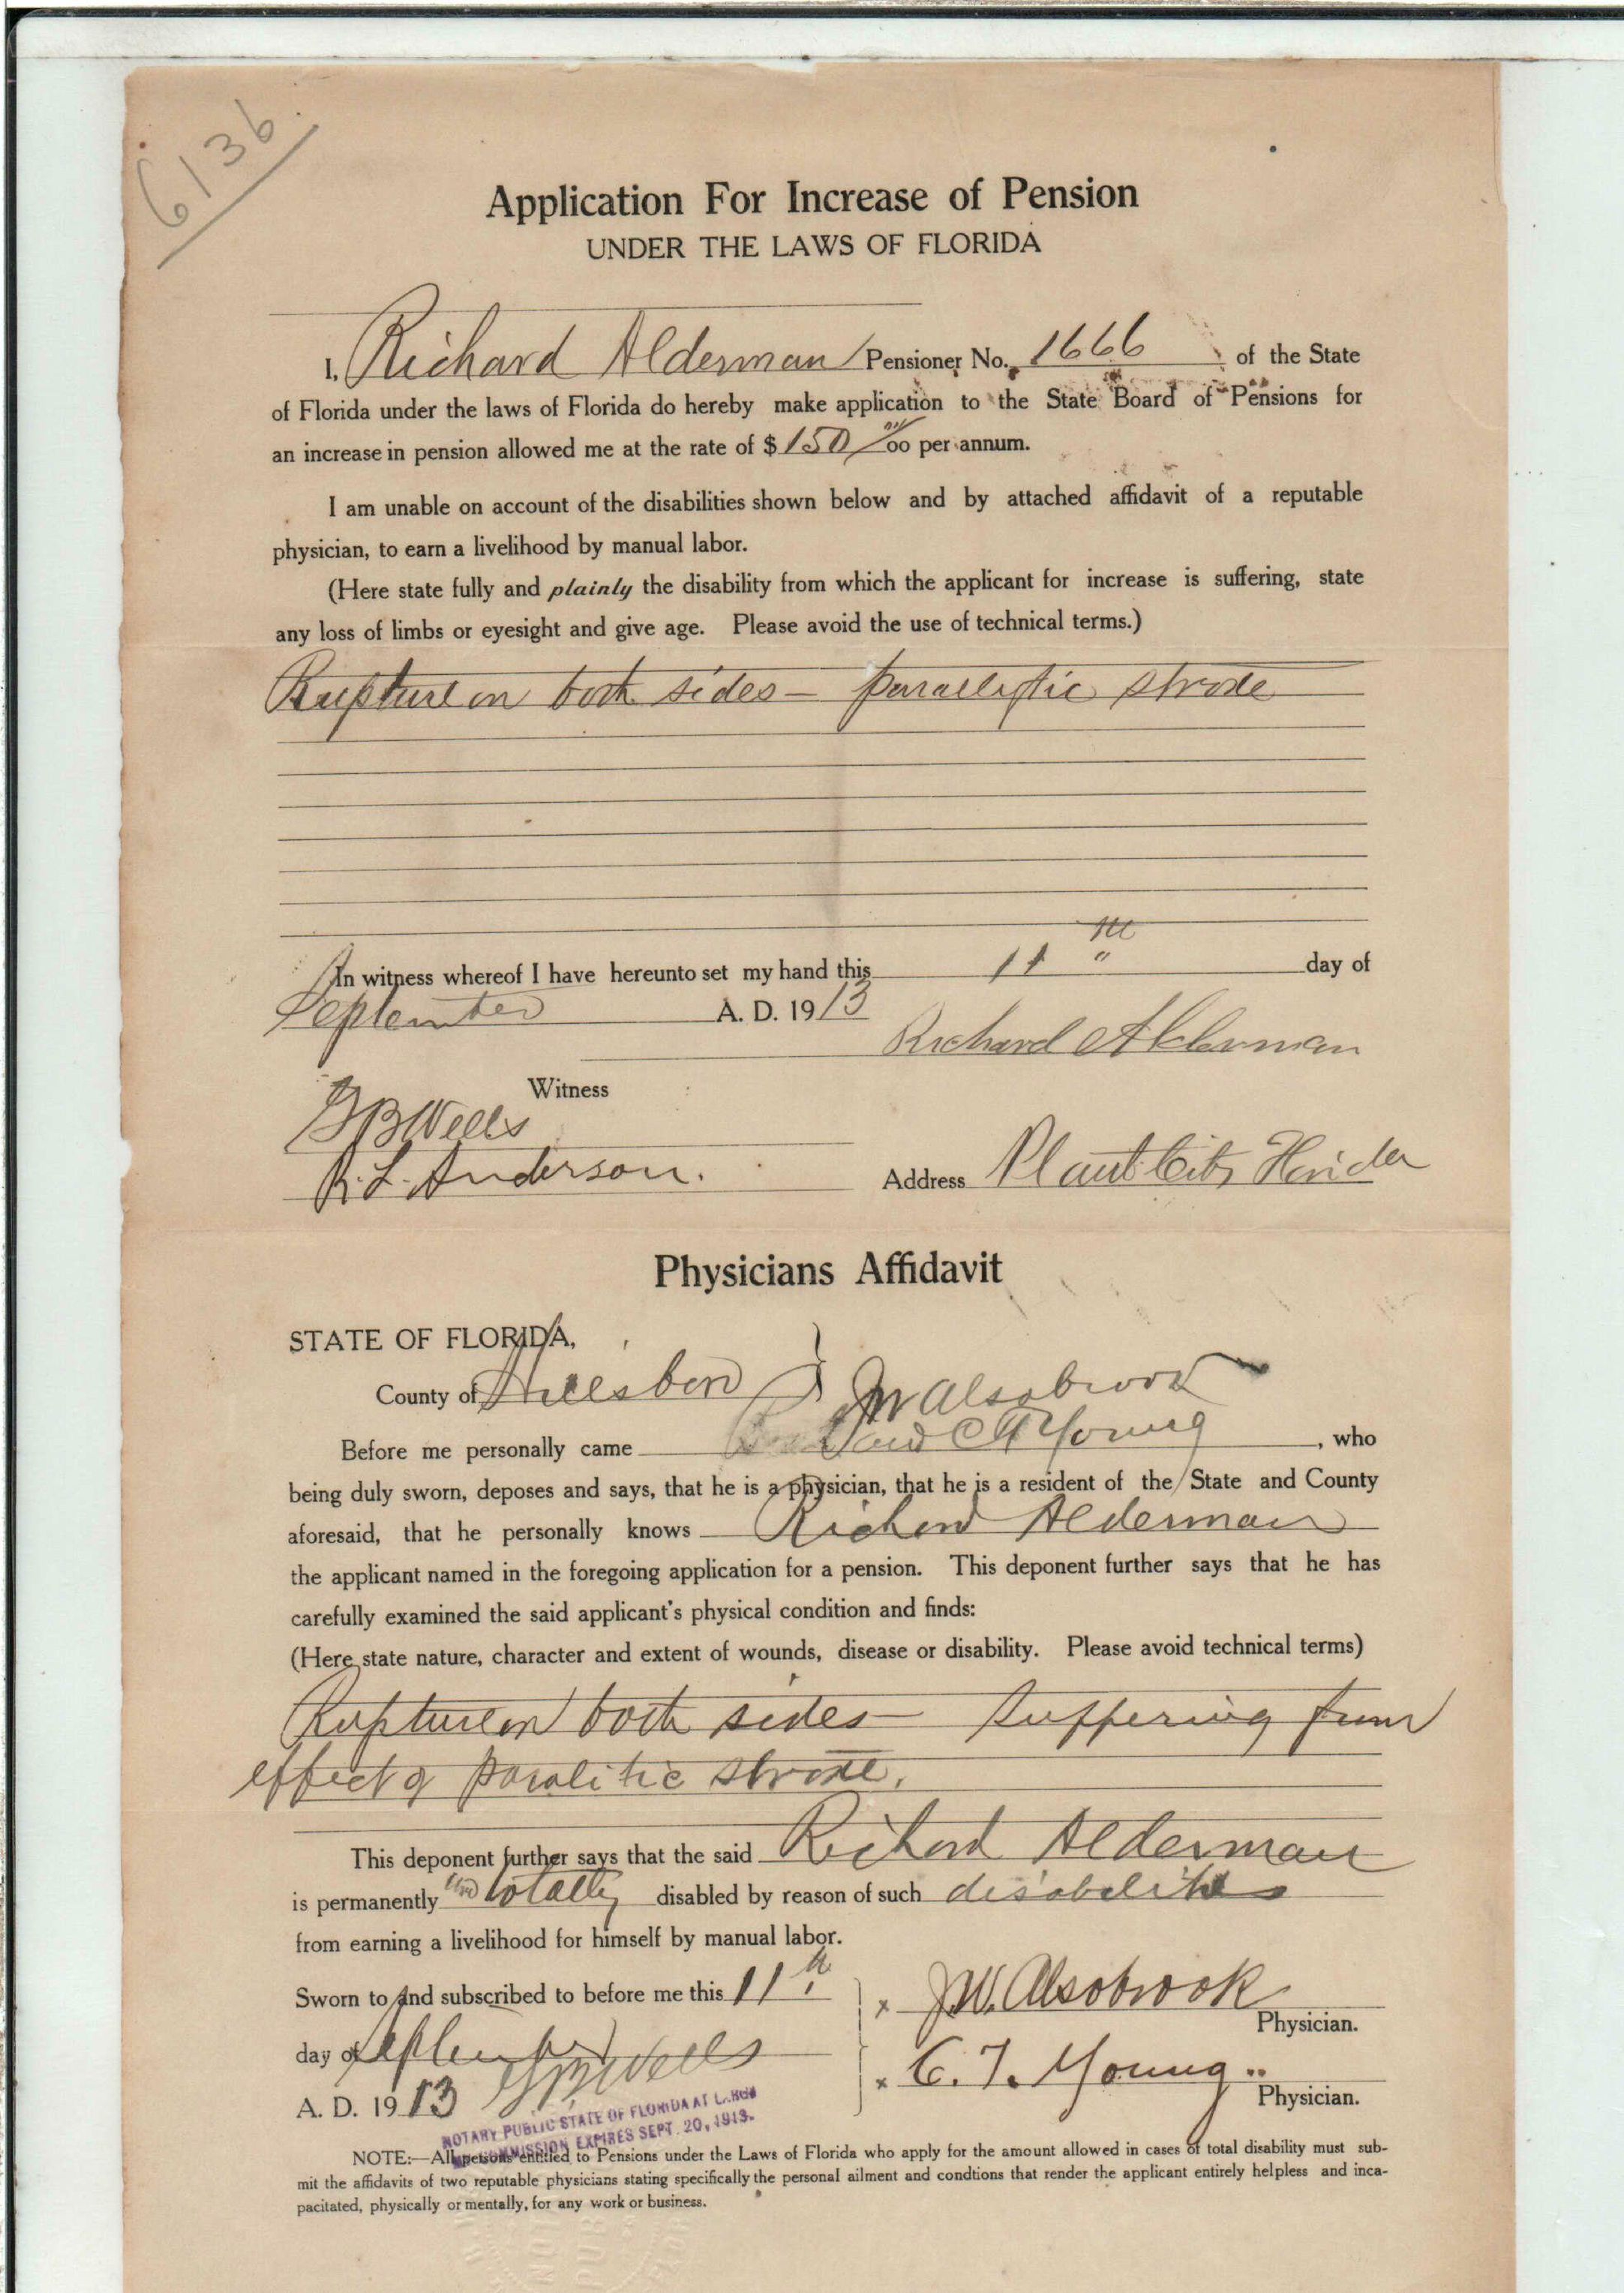 6136
Application For Increase of Pension
UNDER THE LAWS OF FLORIDA
I, Richard Alderman Pensioner No. 1666 of the State
of Florida under the laws of Florida do hereby make application to the State Board of Pensions for
an increase in pension allowed me at the rate of $ 150 no/oo per annum.
I am unable on account of the disabilities shown below and by attached affidavit of a reputable
physician, to earn a livelihood by manual labor.
(Here state fully and plainly the disability from which the applicant for increase is suffering, state
any loss of limbs or eyesight and give age. Please avoid the use of technical terms.)
Rupture on both sides – stroke
In witness whereof I have hereunto set my hand this 11 th day of
September A. D. 1913
Richard Alderman
Witness
B Wells
R. L. Anderson.
Address Plant City Florida
Physicians Affidavit
STATE OF FLORIDA,
County of Hillsboro } JW Alsobrook
Before me personally came and C T Young, who
being duly sworn, deposes and says, that he is a physician, that he is a resident of the State and County
aforesaid, that he personally knows Richard Alderman
the applicant named in the foregoing application for a pension. This deponent further says that he has
carefully examined the said applicant's physical condition and finds:
(Here state nature, character and extent of wounds, disease or disability. Please avoid technical terms)
Rupture on both sides – Suffering from
effect of paralitic stroke.
This deponent further says that the said Richard Alderman
is permanently and totally disabled by reason of such disabilities
from earning a livelihood for himself by manual labor.
Sworn to and subscribed to before me this 11th
x J.W. Alsobrook
Physician.
day of September
B Wells
x C. T. Young
Physician.
A. D. 1913
NOTARY PUBLIC STATE OF FLORIDA AT LARGE
COMMISSION EXPIRES SEPT. 20, 1913.
NOTE:—All persons entitled to Pensions under the Laws of Florida who apply for the amount allowed in cases of total disability must sub-
mit the affidavits of two reputable physicians stating specifically the personal ailment and condtions that render the applicant entirely helpless and inca-
pacitated, physically or mentally, for any work or business.